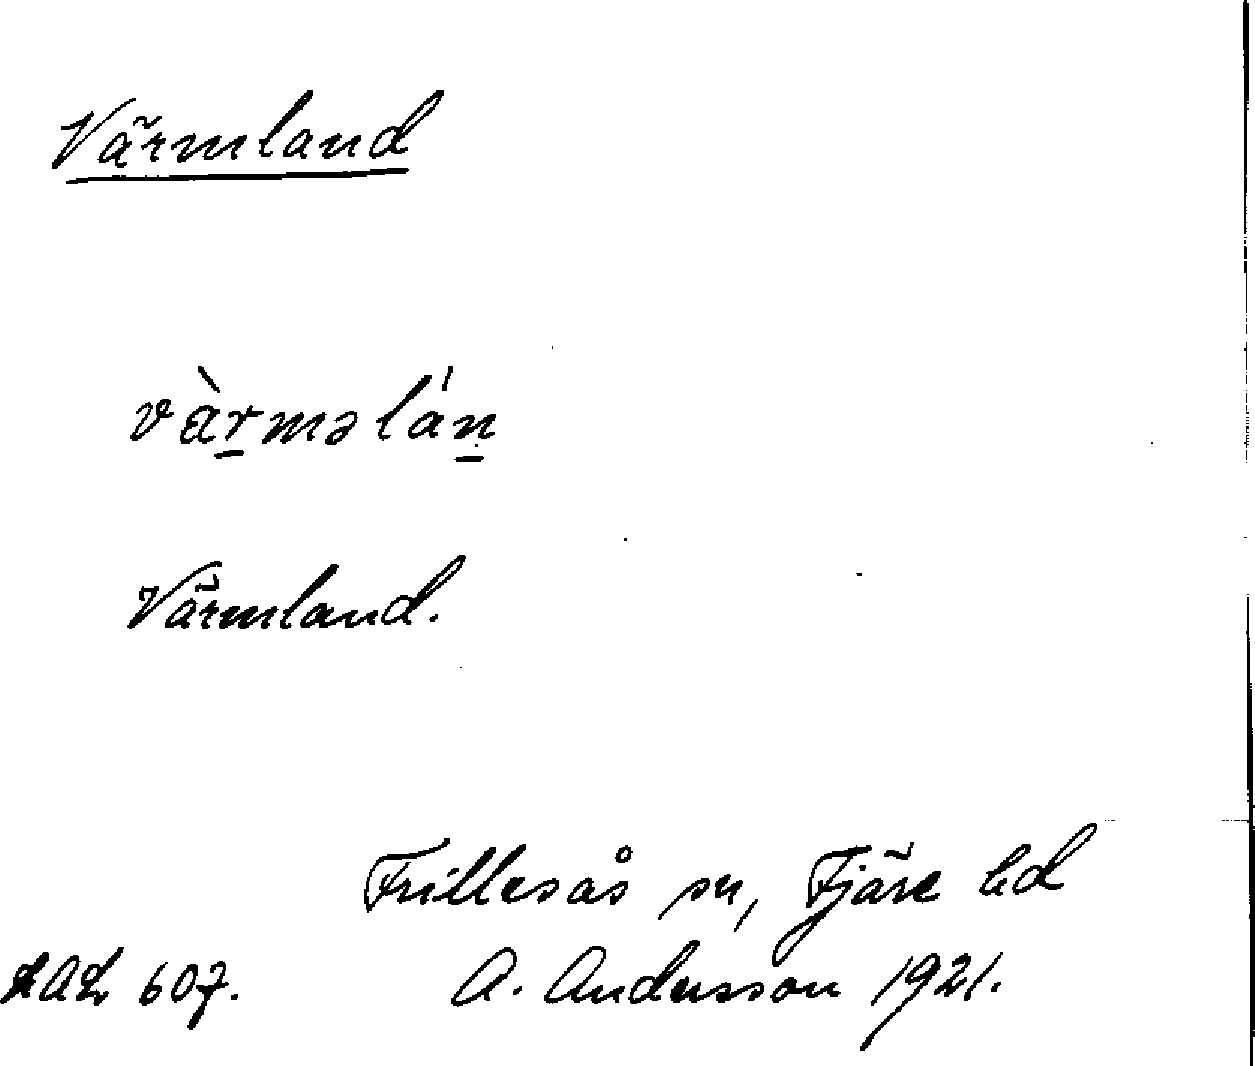 Värmland
vàrməlán
Värmland.
Frillesås sn, Fjäre hd
AAL 607. A. Andersson 1921.